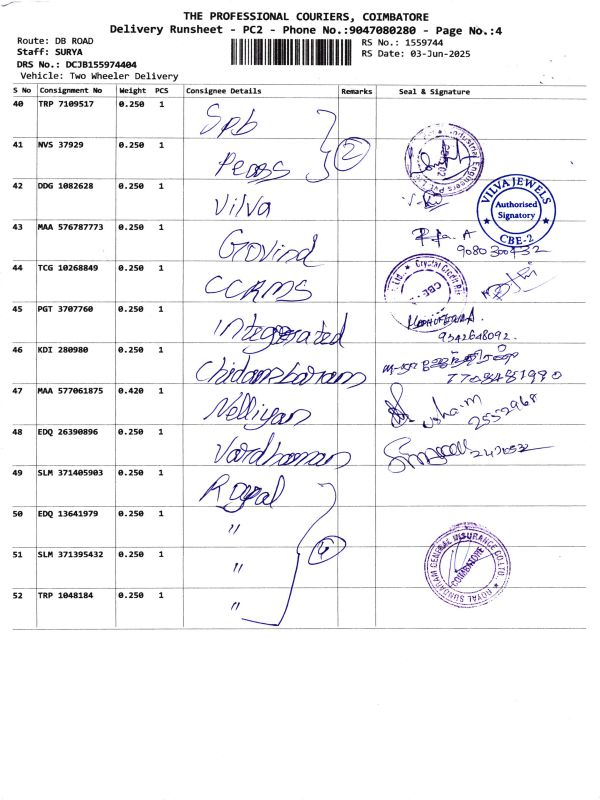 THE PROFESSIONAL COURIERS, COIMBATORE
Delivery Runsheet - PC2 - Phone No.:9047080280 - Page No.:4
Route: DB ROAD
RS No.: 1559744
Staff: SURYA
RS Date: 03-Jun-2025
DRS No.: DCJB155974404
Vehicle: Two Wheeler Delivery
S No Consignment No Weight PCS Consignee Details Remarks Seal & Signature
40 TRP 7109517 0.250 1 Spb
41 NVS 37929 0.250 1 2
42 DDG 1082628 0.250 1 Vilva
VILVA JEWELS
Authorised
Signatory
CBE-2
43 MAA 576787773 0.250 1 Govind
9080300432
44 TCG 10268849 0.250 1 CCRMS
45 PGT 3707760 0.250 1 Integrated
9342648092.
46 KDI 280980 0.250 1 Chidambaram
47 MAA 577061875 0.420 1 Nelliyan
2552968
48 EDQ 26390896 0.250 1 Vardhaman
49 SLM 371405903 0.250 1 Royal
50 EDQ 13641979 0.250 1 "
51 SLM 371395432 0.250 1 "
ROYAL SUNDARAM GENERAL INSURANCE CO.LTD.
COIMBATORE
52 TRP 1048184 0.250 1 "